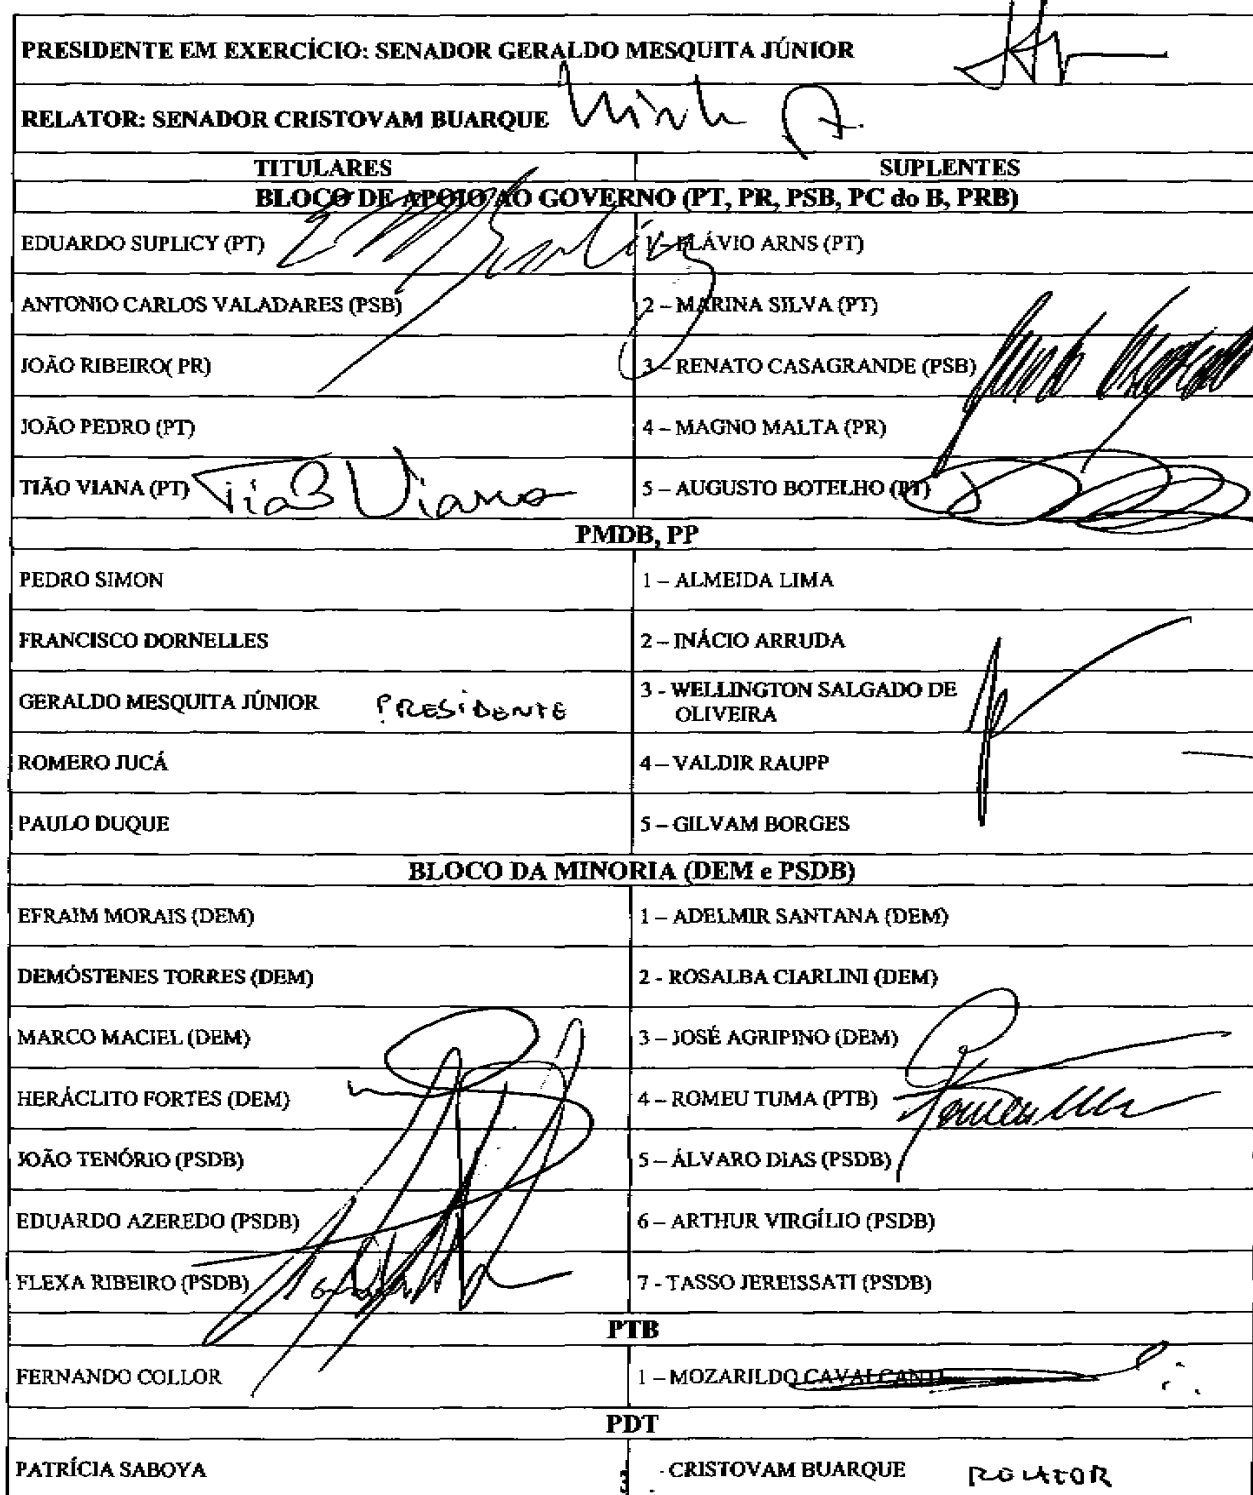 PRESIDENTE EM EXERCÍCIO: SENADOR GERALDO MESQUITA JÚNIOR
RELATOR: SENADOR CRISTOVAM BUARQUE
TITULARES SUPLENTES
BLOCO DE APOIO AO GOVERNO (PT, PR, PSB, PC do B, PRB)
EDUARDO SUPLICY (PT) 1 – FLÁVIO ARNS (PT)
ANTONIO CARLOS VALADARES (PSB) 2 – MARINA SILVA (PT)
JOÃO RIBEIRO( PR) 3 – RENATO CASAGRANDE (PSB)
JOÃO PEDRO (PT) 4 – MAGNO MALTA (PR)
TIÃO VIANA (PT) Tião Viana 5 – AUGUSTO BOTELHO (PT)
PMDB, PP
PEDRO SIMON 1 – ALMEIDA LIMA
FRANCISCO DORNELLES 2 – INÁCIO ARRUDA
GERALDO MESQUITA JÚNIOR PRESIDENTE 3 - WELLINGTON SALGADO DE
OLIVEIRA
ROMERO JUCÁ 4 – VALDIR RAUPP
PAULO DUQUE 5 – GILVAM BORGES
BLOCO DA MINORIA (DEM e PSDB)
EFRAIM MORAIS (DEM) 1 – ADELMIR SANTANA (DEM)
DEMÓSTENES TORRES (DEM) 2 - ROSALBA CIARLINI (DEM)
MARCO MACIEL (DEM) 3 – JOSÉ AGRIPINO (DEM)
HERÁCLITO FORTES (DEM) 4 – ROMEU TUMA (PTB)
JOÃO TENÓRIO (PSDB) 5 – ÁLVARO DIAS (PSDB)
EDUARDO AZEREDO (PSDB) 6 – ARTHUR VIRGÍLIO (PSDB)
FLEXA RIBEIRO (PSDB) 7 - TASSO JEREISSATI (PSDB)
PTB
FERNANDO COLLOR 1 – MOZARILDO CAVALCANTI
PDT
PATRÍCIA SABOYA 3 - CRISTOVAM BUARQUE RELATOR